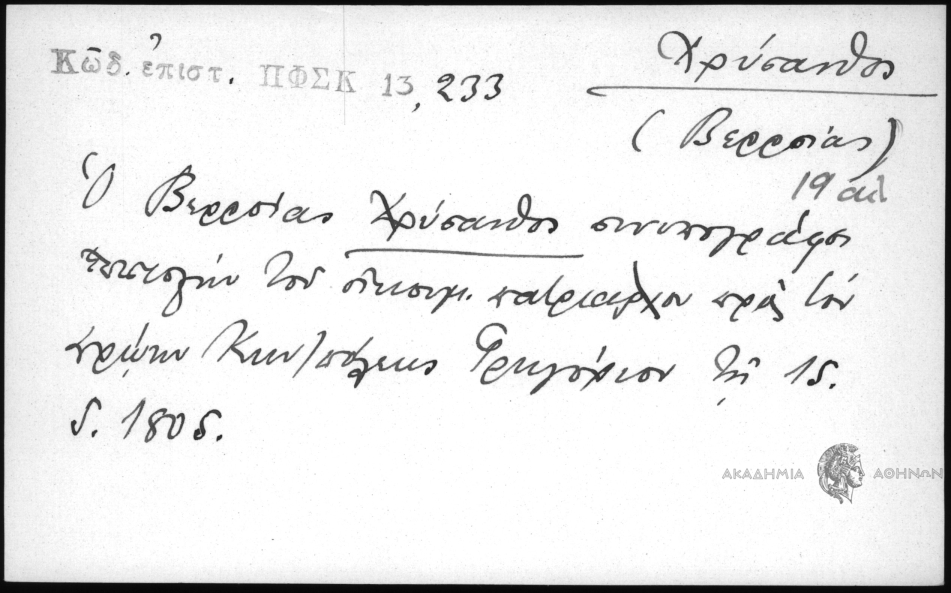 Κῶδ. ἐπιστ. ΠΦΣΚ 13, 233
Χρύσανθος
(Βερροίας)
19 αἰ
Ὁ Βερροίας Χρύσανθος συνυπογράφει
ἐπιστολὴν τοῦ οἰκουμ. πατριαρχου πρὸς τὸν
πρώην Κων/πόλεως Γρηγόριον τῇ
1805.
ΑΚΑΔΗΜΙΑ ΑΘΗΝΩΝ